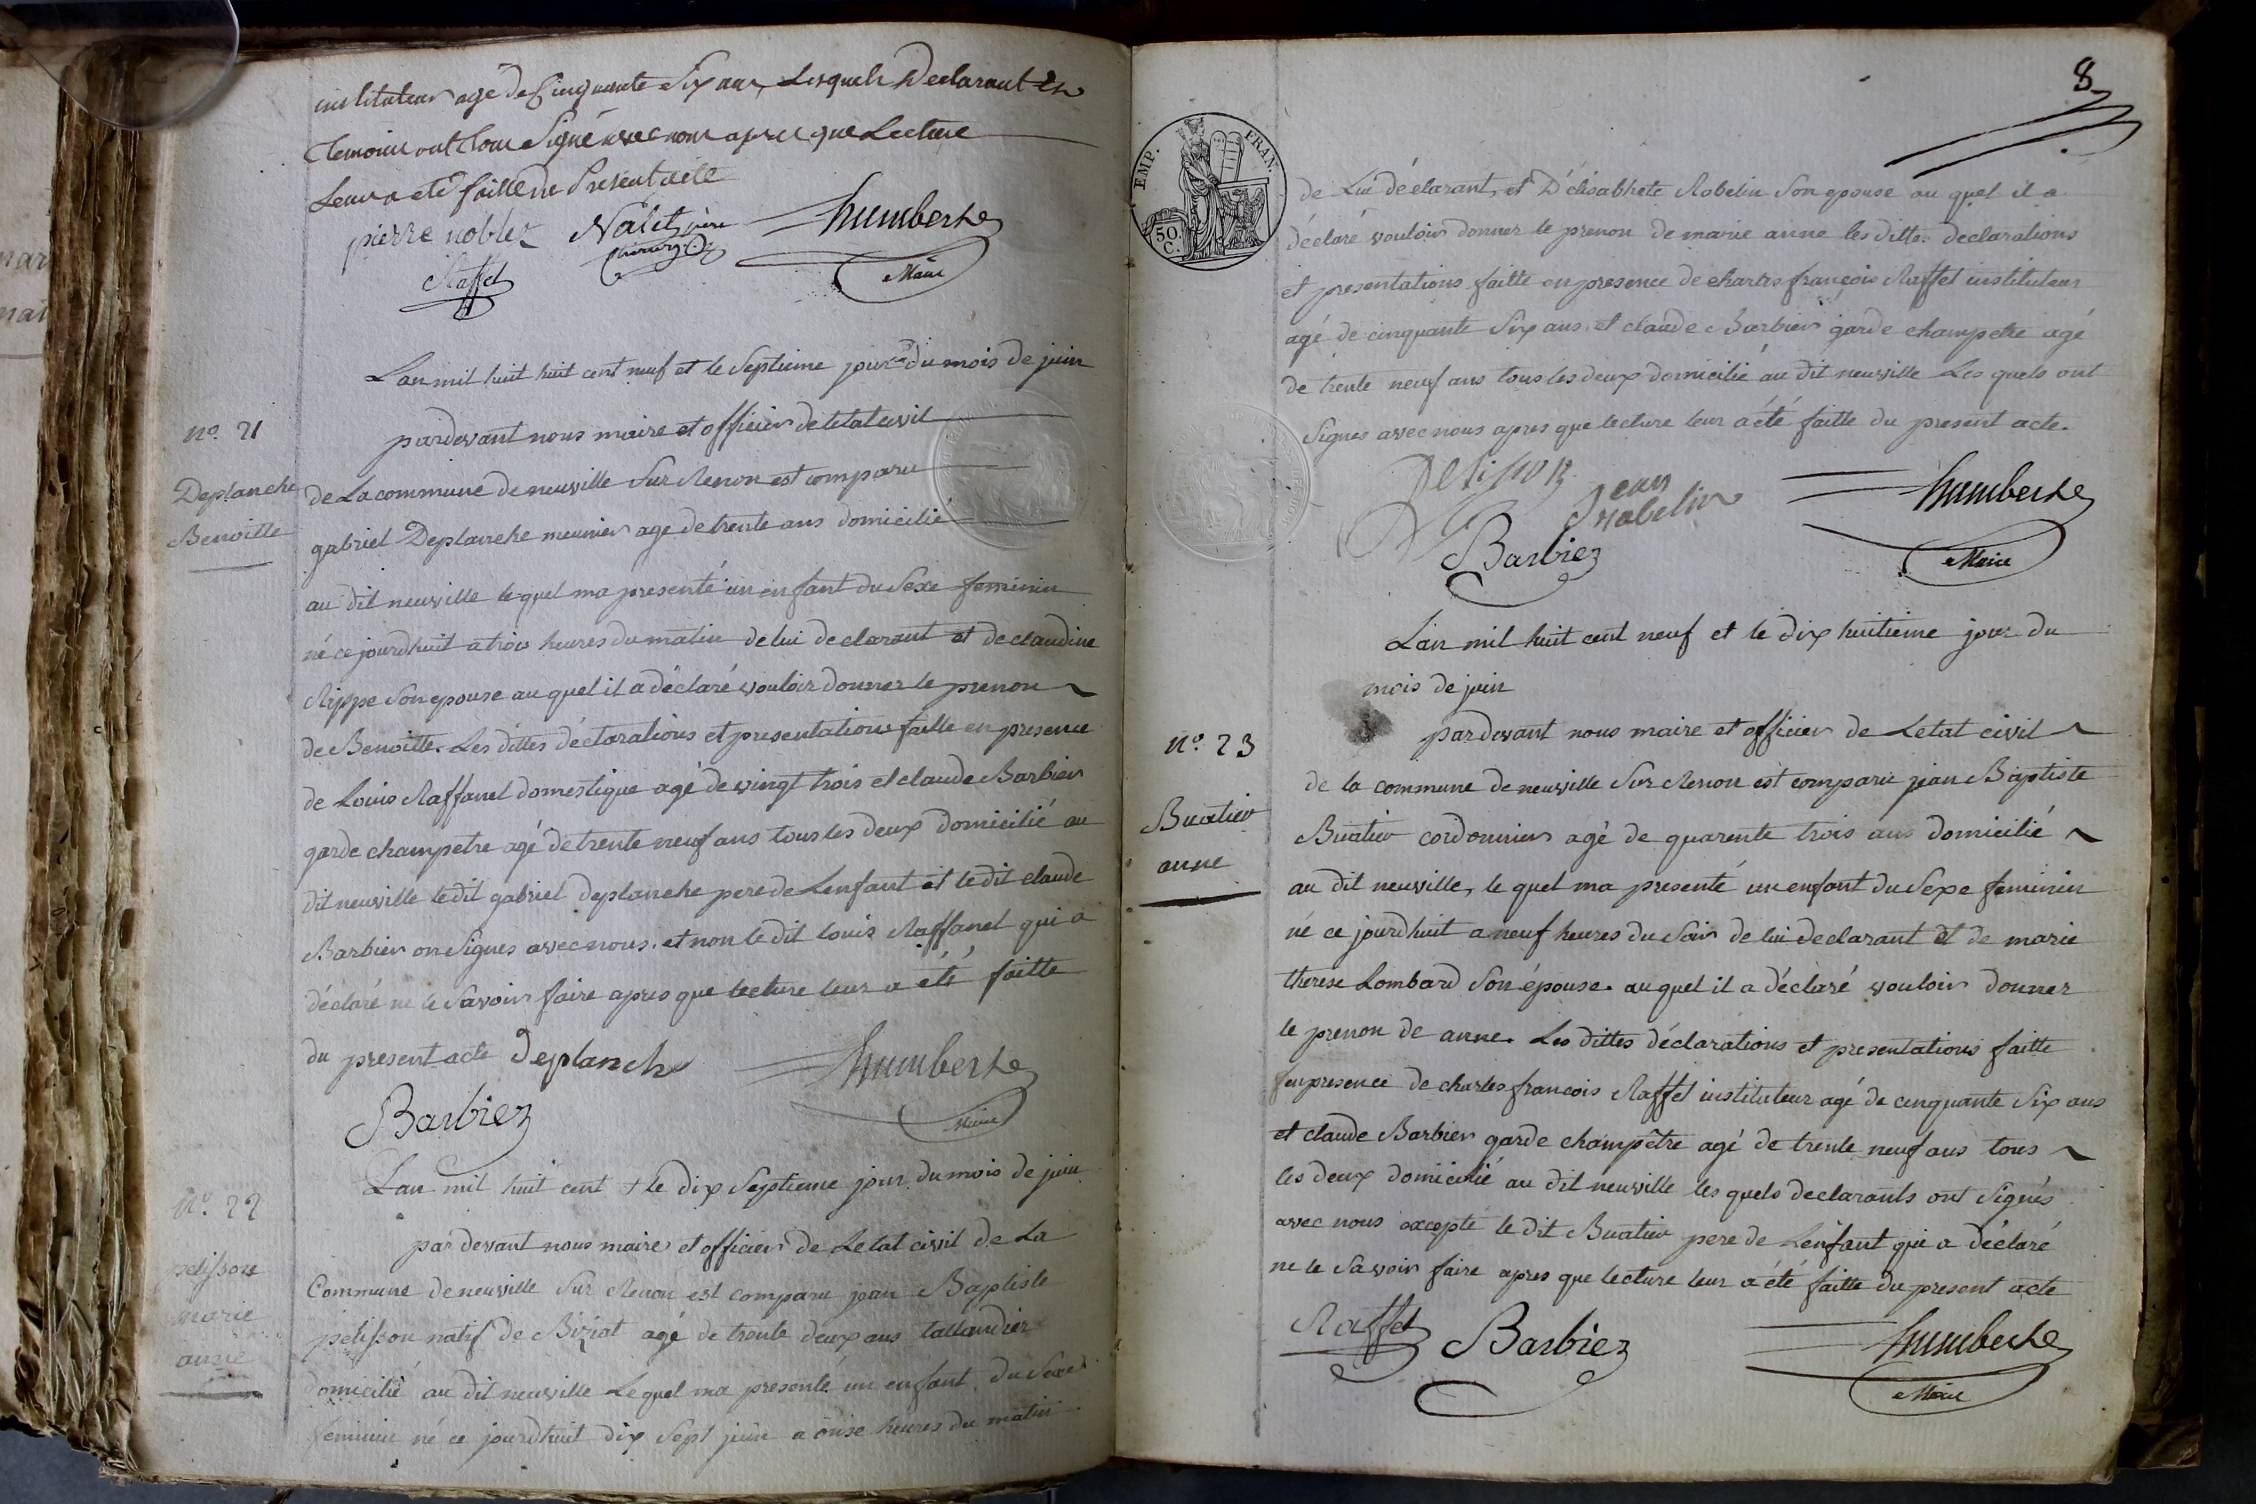 instituteur agé de Cinquante Six ans, Lesquels Declarant et
temoins ont tous Signé avec nous apres que Lecture
Leur a eté faitte du Present acte
pierre noblet Nalet père humberte
chirurgi Maire
Raffet
Lan mil huit huit cent neuf et le Septieme jour du mois de juin
pardevant nous maire et officier de letat civil
nº. 21
Deplanche
Benoitte
de La commune de neuville Sur Renon est comparu
gabriel Deplanche meunier agé de trente ans domicilié
au dit neuville lequel ma presenté un enfant du Sexe feminin
né ce jourdhuit a trois heures du matin de lui declarant et de claudine
Rippe Son epouse au quel il a déclaré vouloir donner le prenon
de Benoitte. Les dittes déclarations et presentations faitte en presence
de Louis Raffanel domestique agé de vingt trois et claude Barbier
garde champetre agé de trente neuf ans tous les deux domicilié au
dit neuville le dit gabriel deplanche pere de Lenfant et le dit claude
Barbier on Signes avec nous. et non le dit louis Raffanel qui a
déclaré ne le Savoir faire apres que lecture leur a été faitte
du present acte Deplanche humberte
Barbier Maire
Lan mil huit cent + le dix Septieme jour du mois de juin
nº. 22
pelisson
marie
anne
par devant nous maire et officier de Letat civil de La
Commune de neuville Sur Renon est comparu jean Baptiste
pelisson natif de Biziat agé de trente deux ans tallandier
domicilié au dit neuville Lequel ma presenté un enfant du Sexe
feminin né ce jourdhuit dix Sept juin a onse heures du matin
8
EMP. FRAN.
50 C.
de Lui déclarant, et D'élisabhete Robelin Son epouse au quel il a
déclaré vouloir donner le prenon de marie anne les dittes declarations
et presentations faitte en presence de charles françois Raffet instituteur
agé de cinquante Six ans. et claude Barbier garde champetre agé
de trente neuf ans tous les deux domicilié au dit neuville Les quels ont
Signes avec nous apres que lecture leur a été faitte du present acte.
Pelisson Jean robelin humberte
Barbier Maire
L'an mil huit cent neuf et le dix huitieme jour du
mois de juin
nº. 23
Buatier
anne
pardevant nous maire et officier de Letat civil
de la commune de neuville Sur Renon est comparu jean Baptiste
Buatier cordonnier agé de quarente trois ans domicilié
au dit neuville, le quel ma presenté un enfant du Sexe feminin
né ce jourdhuit a neuf heures du Soir de lui declarant et de marie
therese Lombard Son épouse. au quel il a déclaré vouloir donner
le prenon de anne. Les dittes déclarations et presentations faitte
en presence de charles francois Raffet instituteur agé de cinquante Six ans
et claude Barbier garde champêtre agé de trente neuf ans tous
les deux domicilié au dit neuville les quels declarants ont Signés
avec nous excepté le dit Buatier pere de Lenfant qui a déclaré
ne le Savoir faire apres que lecture leur a été faitte du present acte
Raffet Barbier humberte
Maire